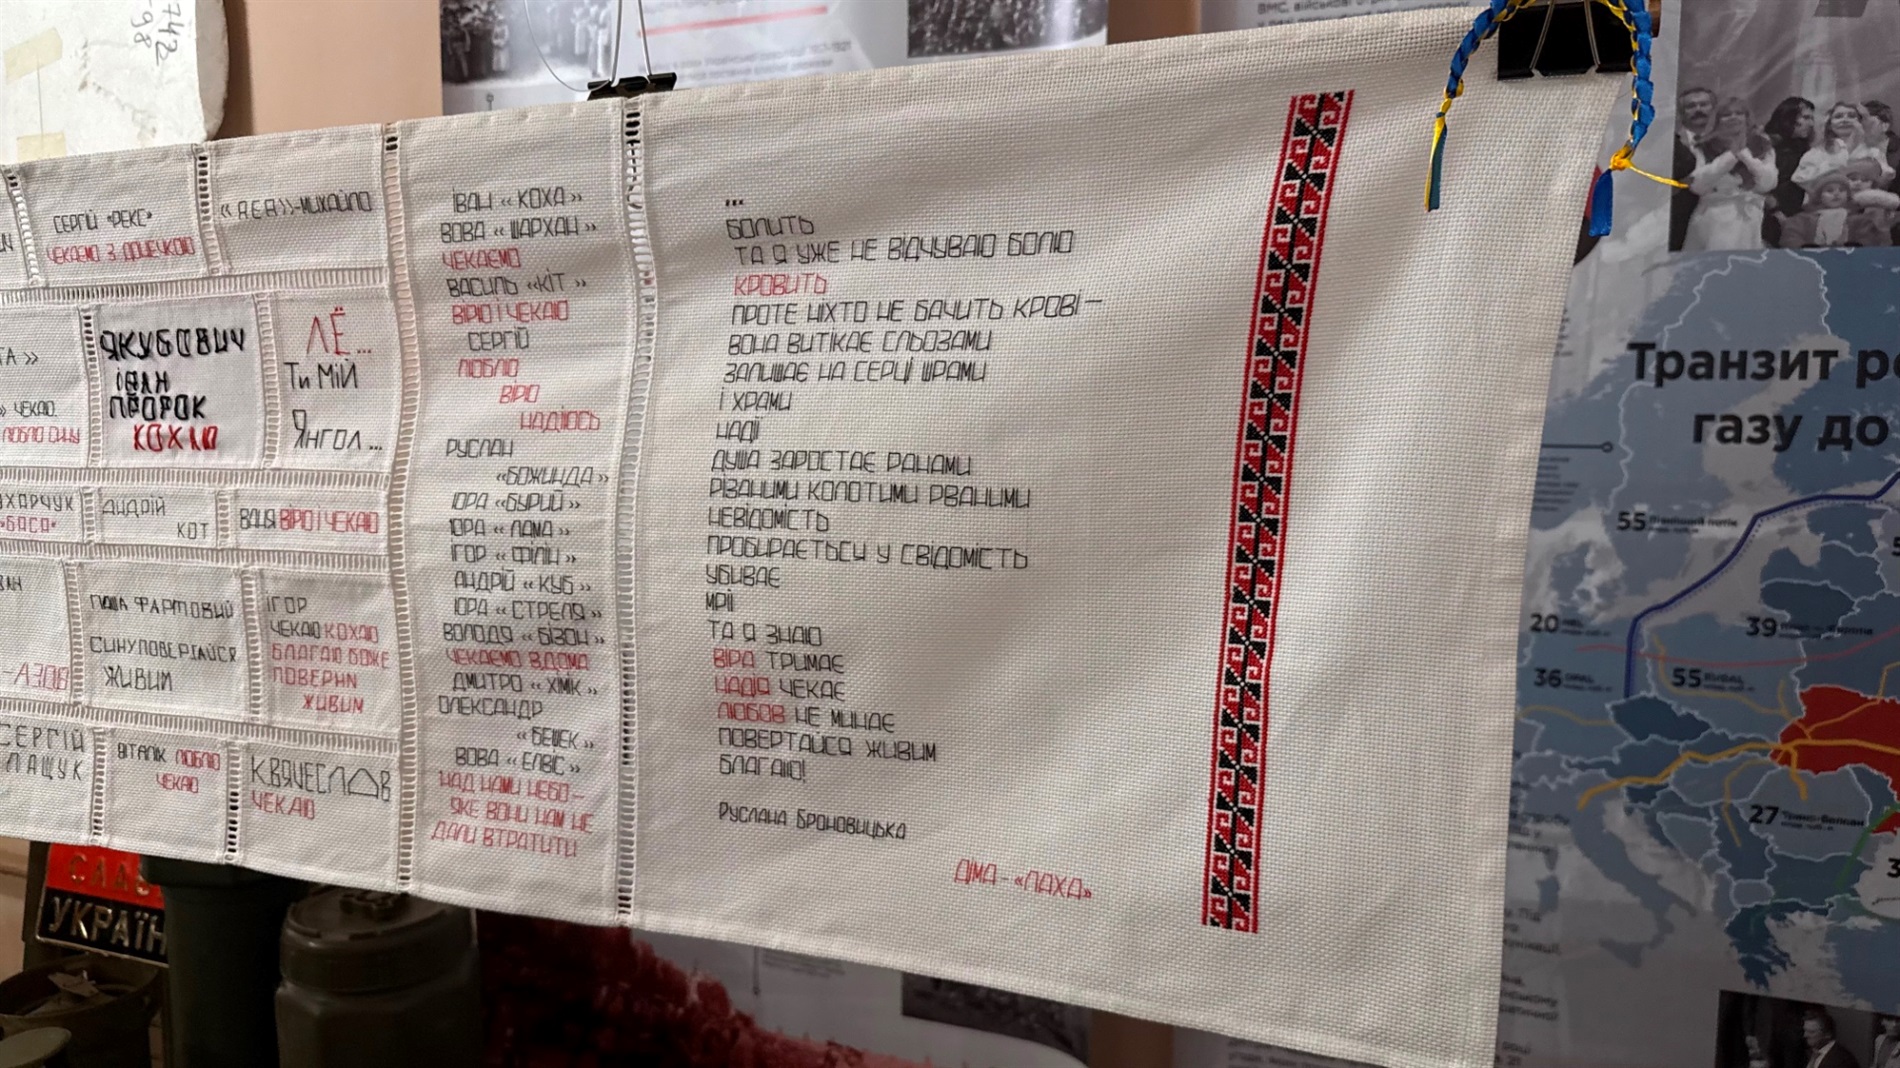 742
-98
СЕРГІЙ «РЕКС»
ЧЕКАЄМО З ДОНЕЦКОЮ
-МИХАЙЛО
ТА »
» ЧЕКАЮ.
ЛЮБЛЮ СИНУ
ЯКУБОВИЧ
ІВАН
ПРОРОК
КОХАЮ
ЛЁ...
Ти МІЙ
ЯНГОЛ...
АХОРЧУК
АНДРІЙ
КОТ
ВАНЯ ВІРЮ І ЧЕКАЮ
ПАША ФАРТОВИЙ
СИНУ ПОВЕРТАЙСЯ
ЖИВИМ
ІГОР
ЧЕКАЮ КОХАЮ
БЛАГАЮ БОЖЕ
ПОВЕРНИ
ЖИВИМ
-АЗОВ
СЕРГІЙ
ЛАЩУК
ВІТАЛІК ЛЮБЛЮ
ЧЕКАЮ
КВЯЧЕСЛАВ
ЧЕКАЮ
ІВАН «КОХА»
ВОВА «ШАРХАН»
ЧЕКАЄМО
ВАСИЛЬ «КІТ»
ВІРЮ І ЧЕКАЮ
СЕРГІЙ
ЛЮБЛЮ
ВІРЮ
НАДІЮСЬ
РУСЛАН
«БОЖИНДА»
ЮРА «БУРИЙ»
ЮРА «ЛАМА»
ІГОР «ФІЛІН»
АНДРІЙ «КУБ»
ЮРА «СТРЕЛЯ»
ВОЛОДЯ «БІЗОН»
ЧЕКАЄМО ВДОМА
ДМИТРО «ХІМІК»
ОЛЕКСАНДР
«БЕШЕК»
ВОВА «ЕЛВІС»
НАД НАМИ НЕБО –
ЯКЕ ВОНИ НАМ НЕ
ДАЛИ ВТРАТИТИ
...
БОЛИТЬ
ТА Я УЖЕ НЕ ВІДЧУВАЮ БОЛЮ
КРОВИТЬ
ПРОТЕ НІХТО НЕ БАЧИТЬ КРОВІ –
ВОНА ВИТІКАЄ СЛЬОЗАМИ
ЗАЛИШАЄ НА СЕРЦІ ШРАМИ
І ХРАМИ
НАДІЇ
ДУША ЗАРОСТАЄ РАНАМИ
РІЗАНИМИ КОЛОТИМИ РВАНИМИ
НЕВІДОМІСТЬ
ПРОБИРАЄТЬСИ У СВІДОМІСТЬ
УБИВАЄ
МРІЇ
ТА Я ЗНАЮ
ВІРА ТРИМАЄ
НАДІЯ ЧЕКАЄ
ЛЮБОВ НЕ МИНАЄ
ПОВЕРТАЙСЯ ЖИВИМ
БЛАГАЮ!
РУСЛАНА БРОНОВИЦЬКА
ДІМА - «ПАХА»
Транзит ро
газу до
55
20
39
36
55
27
УКРАЇН